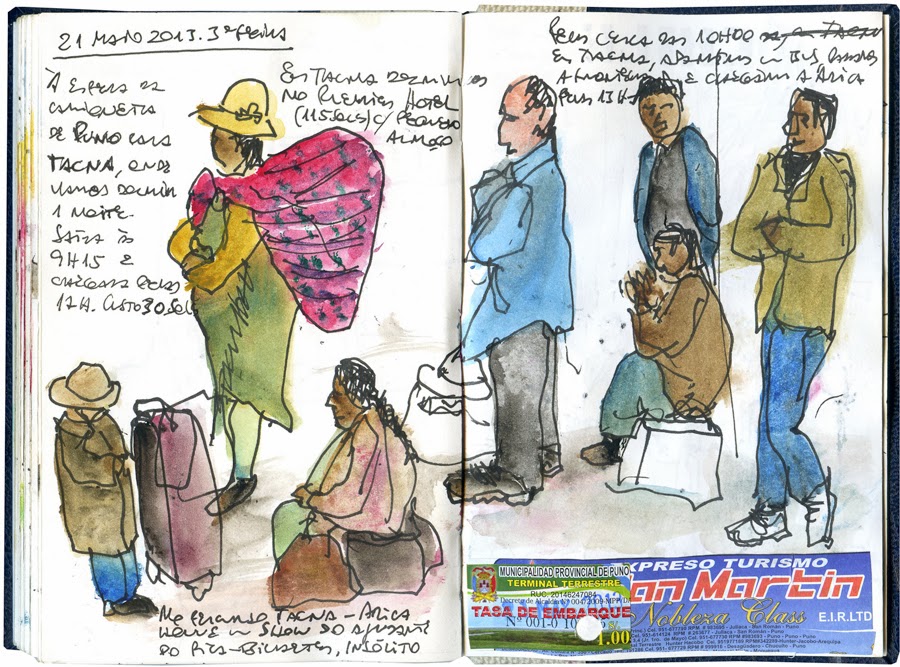 21 MAIO 2013. 3ª FEIRA
À ESPERA DA
CAMIONETA
DE PUNO PARA
TACNA, ONDE
VAMOS DORMIR
1 NOITE.
SAÍDA ÀS
9H15 E
CHEGADA PELAS
17H. CUSTO 30 SOL
EM TACNA DORMIMOS
NO PREMIER HOTEL
(115 SOLES) C/ PEQUENO
ALMOÇO
PELAS CERCA DAS 10H00
EM TACNA, APANHÁMOS UM BUS, PASSÁMOS
A FRONTEIRA E CHEGÁMOS A ARICA
PELAS 13H
NO TACNA - ARICA
HOUVE UM SHOW DO AJUDANTE
DO PICA-BILHETES, INSÓLITO
MUNICIPALIDAD PROVINCIAL DE PUNO
TERMINAL TERRESTRE
RUC. 20146247084
TASA DE EMBARQUE
1.00
EXPRESO TURISMO
San Martin
Nobleza Class
E.I.R.LTD